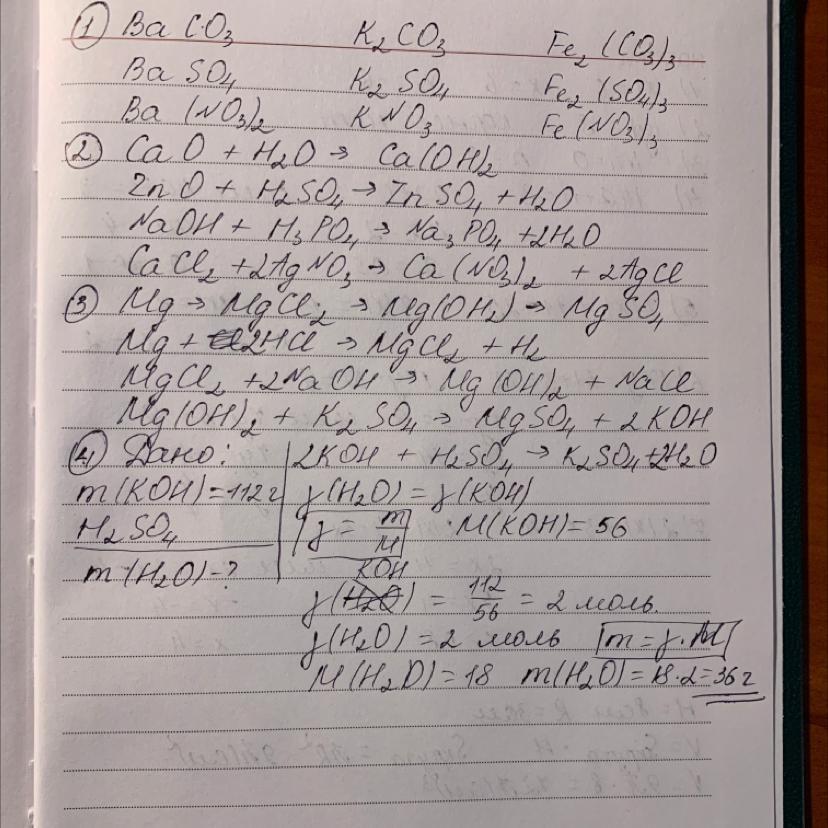 ① BaCO₃ K₂CO₃ Fe₂(CO₃)₃
BaSO₄ K₂SO₄ Fe₂(SO₄)₃
Ba(NO₃)₂ KNO₃ Fe(NO₃)₃
② CaO + H₂O → Ca(OH)₂
ZnO + H₂SO₄ → ZnSO₄ + H₂O
NaOH + H₃PO₄ → Na₃PO₄ + 2H₂O
CaCl₂ + 2AgNO₃ → Ca(NO₃)₂ + 2AgCl
③ Mg → MgCl₂ → Mg(OH₂) → MgSO₄
Mg + 2HCl → MgCl₂ + H₂
MgCl₂ + 2NaOH → Mg(OH)₂ + NaCl
Mg(OH)₂ + K₂SO₄ → MgSO₄ + 2KOH
④ Дано: 2KOH + H₂SO₄ → K₂SO₄ + 2H₂O
m(KOH) = 112 г γ(H₂O) = γ(KOH)
H₂SO₄ γ = m/M · M(KOH) = 56
m(H₂O) - ?
γ(KOH) = 112/56 = 2 моль.
γ(H₂O) = 2 моль m = γ · M
M(H₂O) = 18 m(H₂O) = 18 · 2 = 36 г